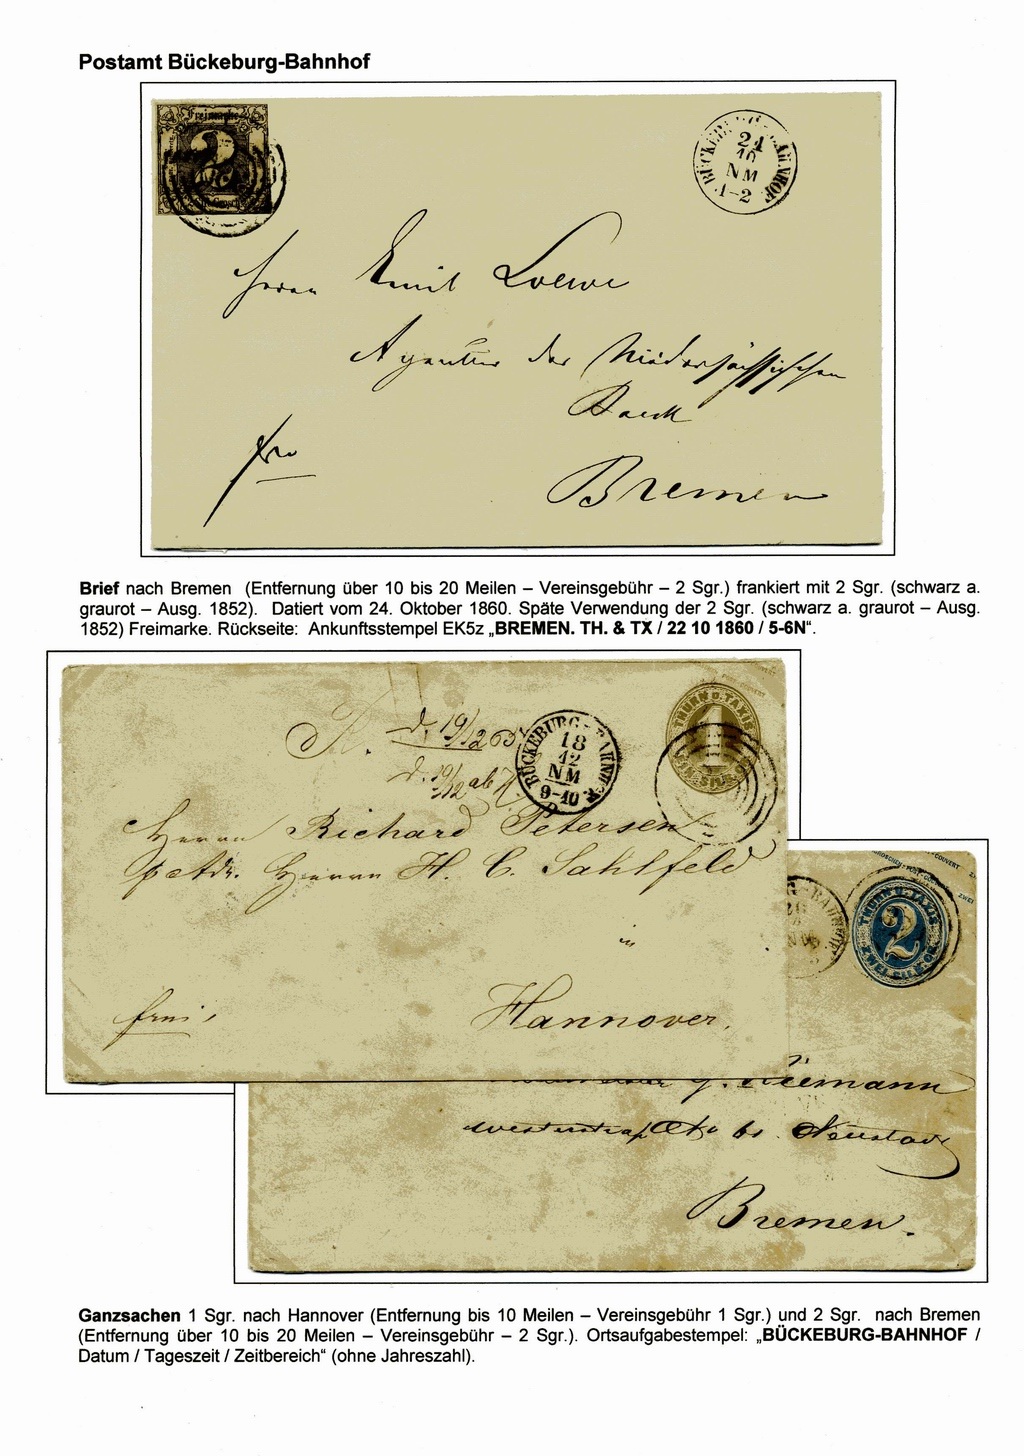 Postamt Bückeburg-Bahnhof
Freimarke
2
BÜCKEBURG-BAHNHOF
24
10
NM
1-2
Herrn Emil Loewe
Agentur der Niedersächsischen
Bank
fro
Bremen
Brief nach Bremen (Entfernung über 10 bis 20 Meilen – Vereinsgebühr – 2 Sgr.) frankiert mit 2 Sgr. (schwarz a.
graurot – Ausg. 1852). Datiert vom 24. Oktober 1860. Späte Verwendung der 2 Sgr. (schwarz a. graurot – Ausg.
1852) Freimarke. Rückseite: Ankunftsstempel EK5z „BREMEN. TH. & TX / 22 10 1860 / 5-6N“.
THURN U. TAXIS
1
BÜCKEBURG-BAHNHOF
18
12
NM
9-10
d. 19/12 65
Herrn Richard Petersen
p Adr. Herrn H. C. Sahlfeld
in
frei
Hannover.
THURN U. TAXIS
2
Bremen.
Ganzsachen 1 Sgr. nach Hannover (Entfernung bis 10 Meilen – Vereinsgebühr 1 Sgr.) und 2 Sgr. nach Bremen
(Entfernung über 10 bis 20 Meilen – Vereinsgebühr – 2 Sgr.). Ortsaufgabestempel: „BÜCKEBURG-BAHNHOF /
Datum / Tageszeit / Zeitbereich“ (ohne Jahreszahl).